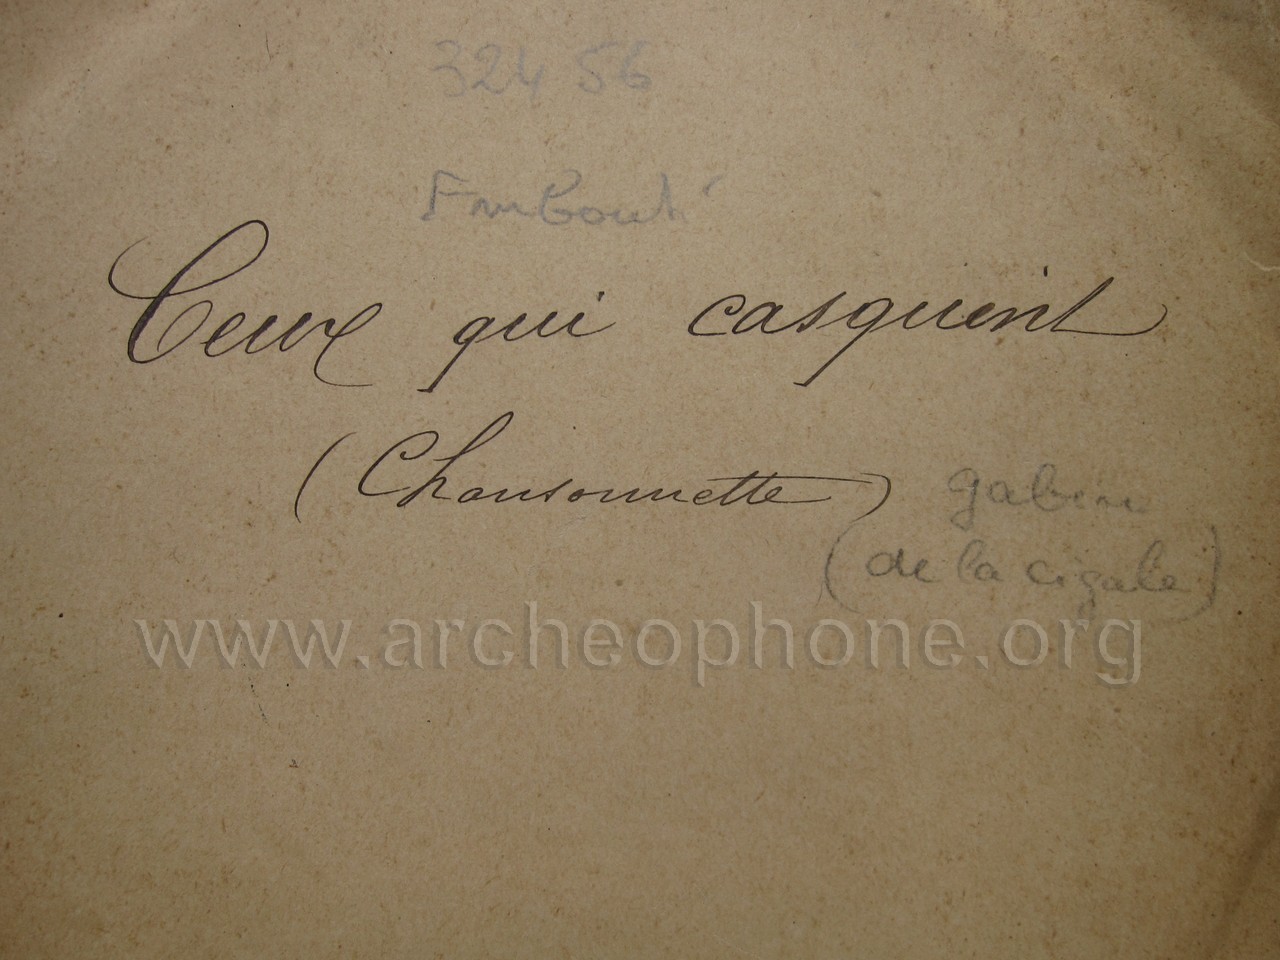 32456
Ceux qui casquent
(Chansonnette) gabin
(de la cigale)
www.archeophone.org